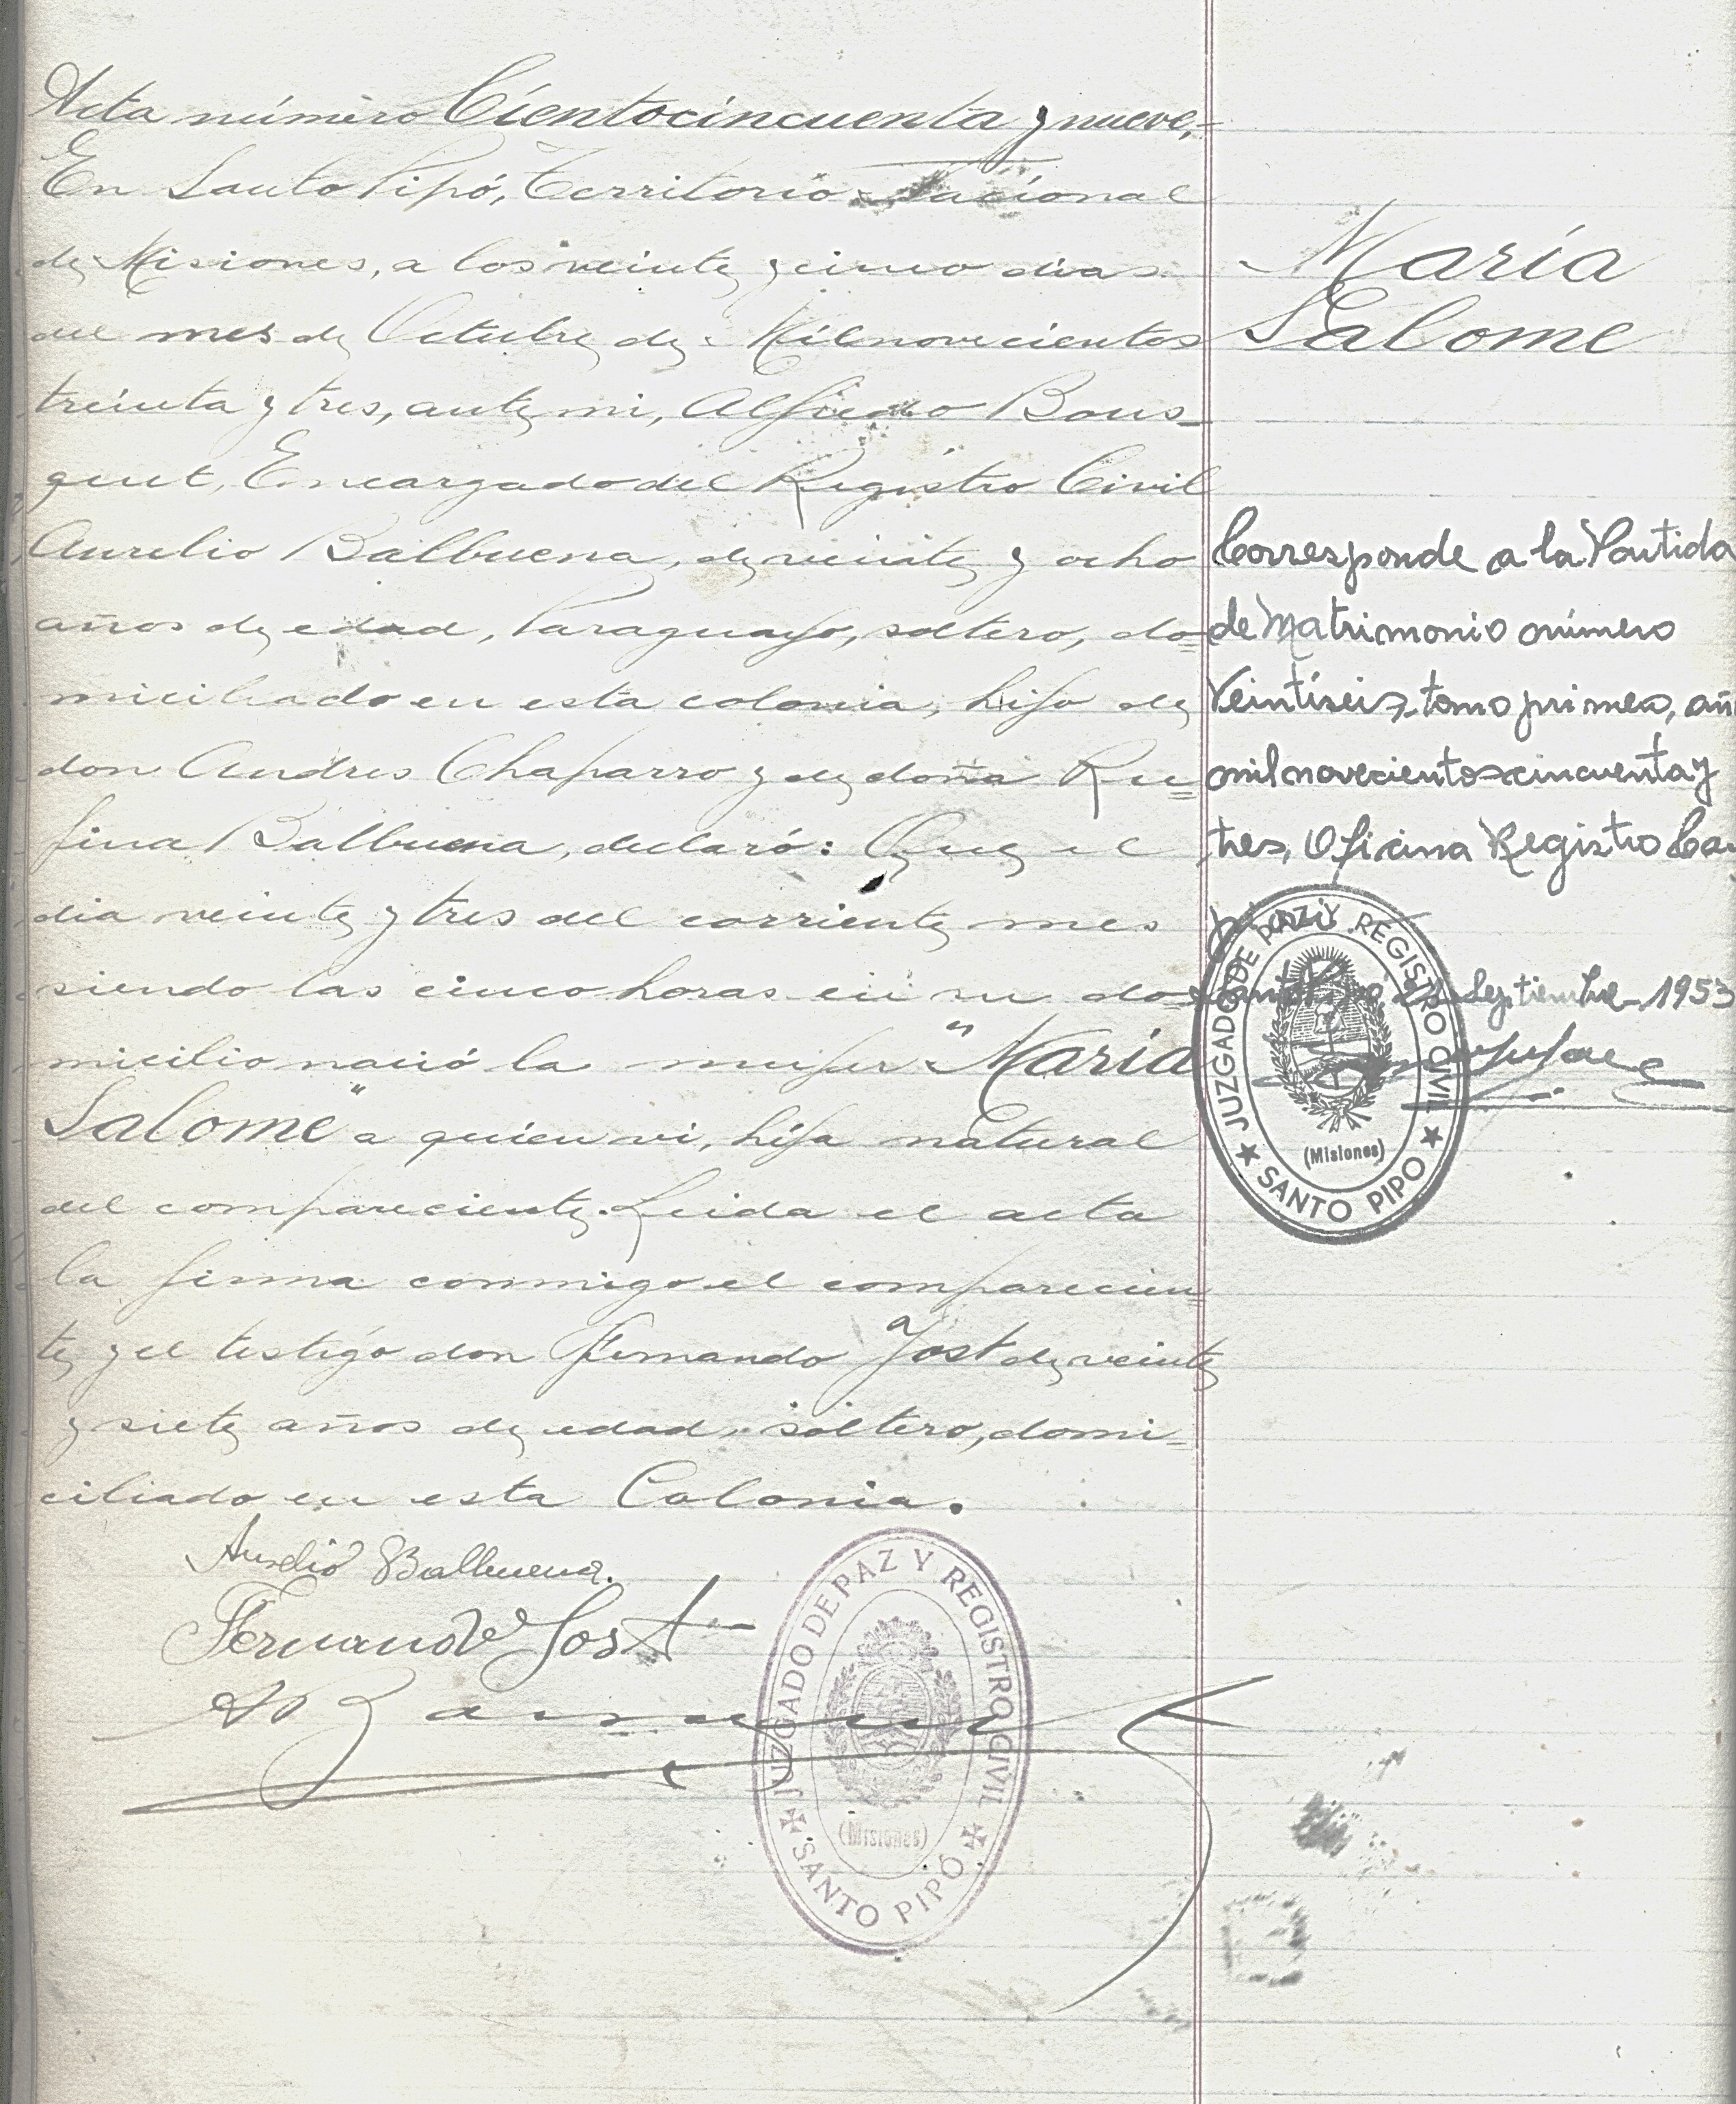 Acta número Cientocincuenta y nueve,-
En Santo Pipó, Territorio Nacional
de Misiones, a los veinte y cinco dias
del mes de Octubre de Mil novecientos
treinta y tres, ante mi, Alfredo Bous-
quet, Encargado del Registro Civil
Aurelio Balbuena, de veinte y ocho
años de edad, Paraguayo, soltero, do=
miciliado en esta colonia, hijo de
don Andres Chaparro y de doña Ru=
fina Balbuena, declaró: Que el
dia veinte y tres del corriente mes
siendo las cinco horas en su do=
micilio nació la mujer "María
Salome" a quien vi, hija natural
del compareciente. Leida el acta
la firma conmigo el comparecien=
te y el testigo don Fernando Jost de veinte
y siete años de edad, soltero, domi=
ciliado en esta Colonia.
Aurelio Balbuena.
Fernando Jost
JUZGADO DE PAZ Y REGISTRO CIVIL
(Misiones)
SANTO PIPÓ
María
Salome
Corresponde a la Partida
de Matrimonio número
Veintiseis, tomo primero, añ
mil novecientos cincuenta y
tres, Oficina Registro
Septiembre 1953
JUZGADO DE PAZ Y REGISTRO CIVIL
(Misiones)
SANTO PIPO